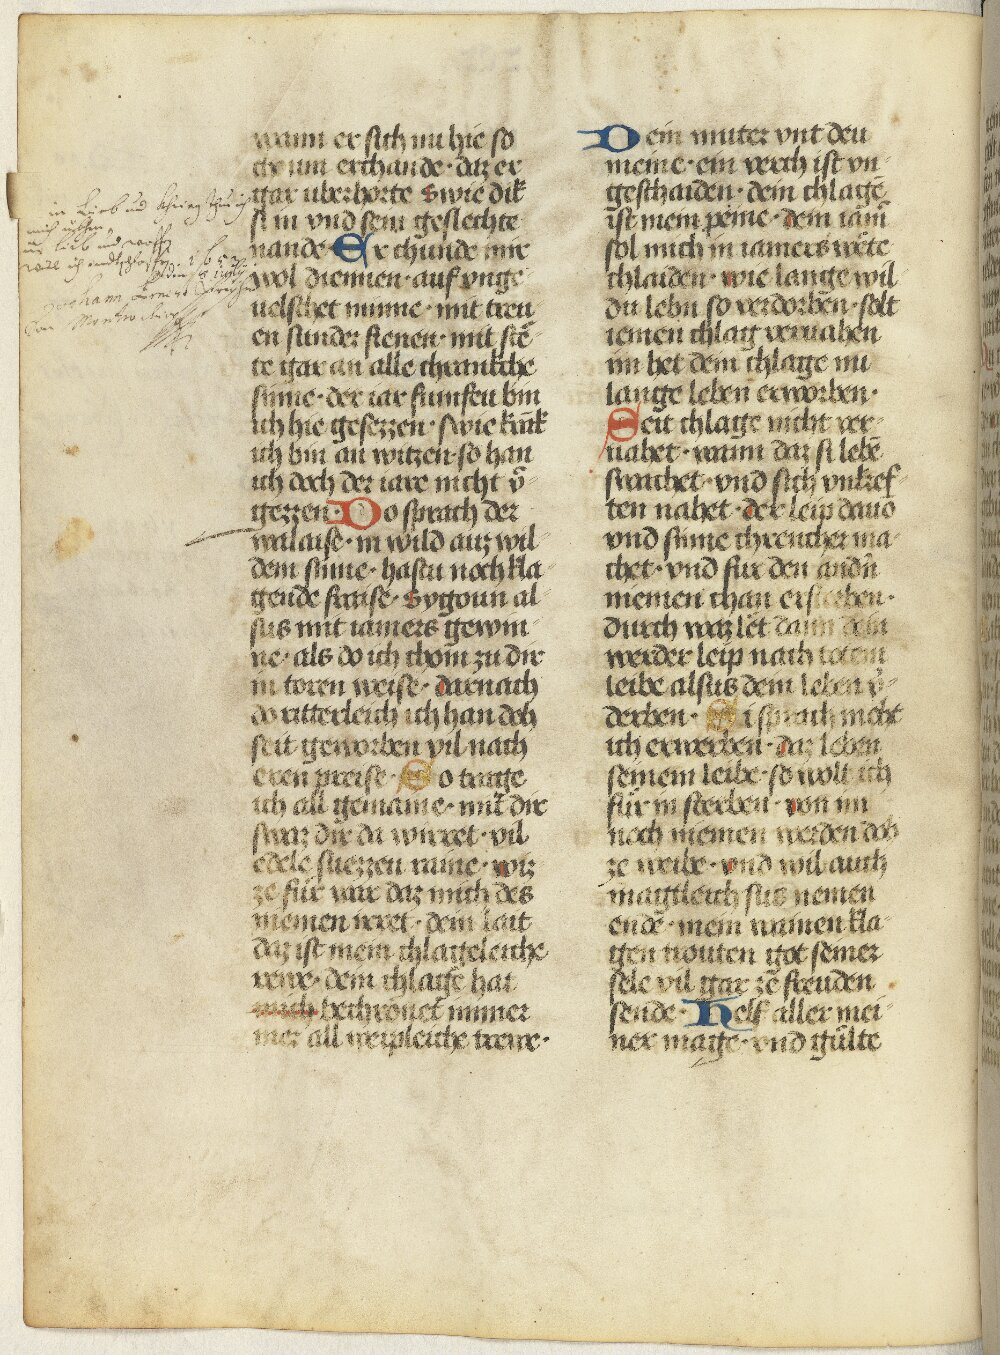 wann er sich nu hie so
gar uberhorte swie dik
si in vnd sein geslechte
nande · Er chunde mir
wol diennen · auf vnge
uelschet minne · mit treu
en sunder stenen · mit stē
te gar an alle chrankche
sinne · der iar funfeu bin
ich hie gesezzen · swie krāk
ich bin an witzen · so han
ich doch der iare nicht v̄
gezzen · Do sprach der
walaise · in wild auz wil
dem sinne · hastu noch kla
gende fraise · Sygoun al
sus mit iamers gewin
ne · als do ich chom zu dir
in toren weise · darnach
do ritterleich ich han doh
seit geworben vil nach
eren preise · So trage
ich all gemaine · mit dir
swaz dir da wirret · vil
edele suezzeu raine · wiz
ze für war daz mich des
niemen irret · dein lait
daz ist mein chlageleiche
rewe · dein chlage hat
mich bechrönet immer
mer all weipleiche trewe ·
Dein muter vnt deu
meine · ein verch ist vn
geschaiden · dein chlagē
ist mein peine · dein iam̄
sol mich in iamers wete
chlaiden · wie lange wil
du lebn so verdorben · solt
iemen chlag veruahen
im het dein chlage nu
lange leben erworben ·
Seit chlage nicht ver
uahet · wann daz si lebē
swachet · vnd sich vnkref
ten nahet · der leip dauō
vnd sinne chrencher ma
chet · vnd fur den andn̄
niemen chan ersterben ·
durch waz let dann dein
werder leip nach totem
leibe alsus dem leben v̄
derben · Si sprach mcht
ich erwerben · daz leben
seinem leibe · so wolt ich
für in sterben · von im
noch niemen werden doh
ze weibe · vnd wil auch
magtleich sus nemen
ende · mein wainen kla
gen trouten got seiner
sele vil gar ze freuden
sende · Helf aller mei
ner mage · vnd gülte